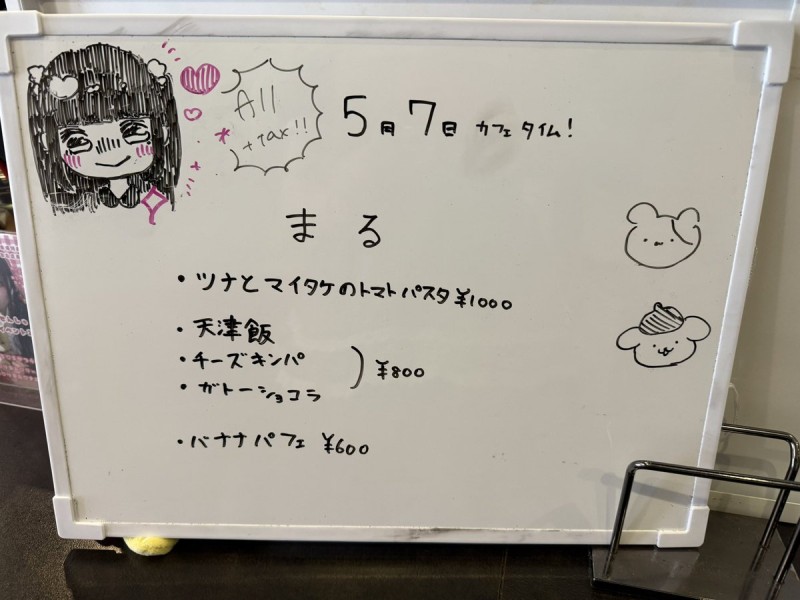 All
+ tax!!
5月7日 カフェタイム!
まる
・ツナとマイタケのトマトパスタ ¥1000
・天津飯
・チーズキンパ
・ガトーショコラ
) ¥800
・バナナパフェ ¥600